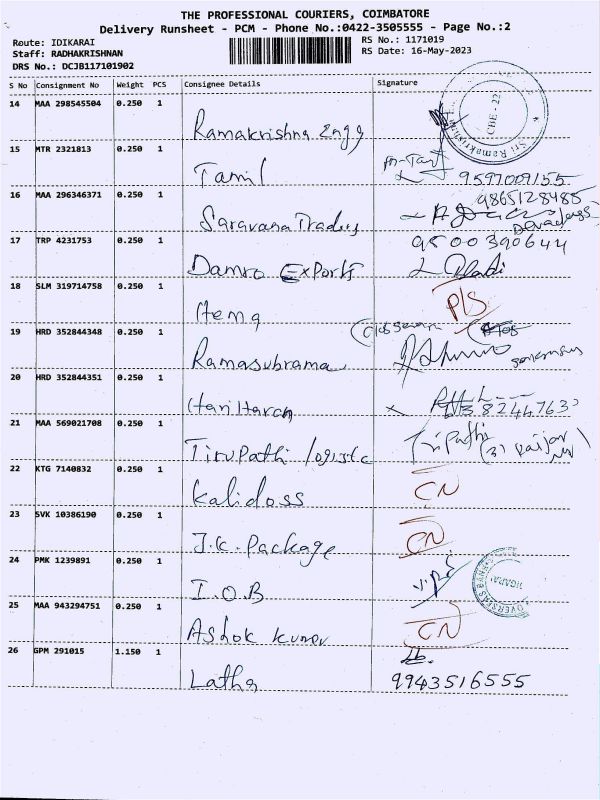 THE PROFESSIONAL COURIERS, COIMBATORE
Delivery Runsheet - PCM - Phone No.:0422-3505555 - Page No.:2
Route: IDIKARAI RS No.: 1171019
Staff: RADHAKRISHNAN RS Date: 16-May-2023
DRS No.: DCJB117101902
S No Consignment No Weight PCS Consignee Details Signature
14 MAA 298545504 0.250 1
Ramakrishna Engg
CBE - 22
Sri Ramakrishna
15 MTR 2321813 0.250 1
Tamil 9597009155
16 MAA 296346371 0.250 1 9865128485
Saravana Traders
17 TRP 4231753 0.250 1 9500390644
Damro Exports
18 SLM 319714758 0.250 1
Hema P/S
19 HRD 352844348 0.250 1
Ramasubrama
20 HRD 352844351 0.250 1
Hari Haran
21 MAA 569021708 0.250 1
Tirupathi logistc
22 KTG 7140832 0.250 1
Kalidoss CN
23 SVK 10386190 0.250 1
J.K. Package CN
24 PMK 1239891 0.250 1
I.O.B
OVERSEAS BANK
25 MAA 943294751 0.250 1
Ashok kumar CN
26 GPM 291015 1.150 1
Latha 9943516555